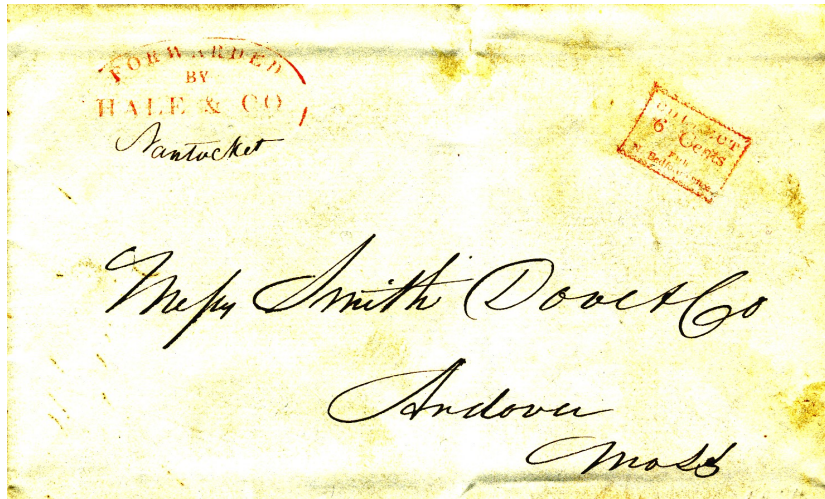 FORWARDED
BY
HALE & CO
Nantucket
COLLECT
6 Cents
For
N. Bedford
Messrs Smith Dove & Co
Andover
Mass